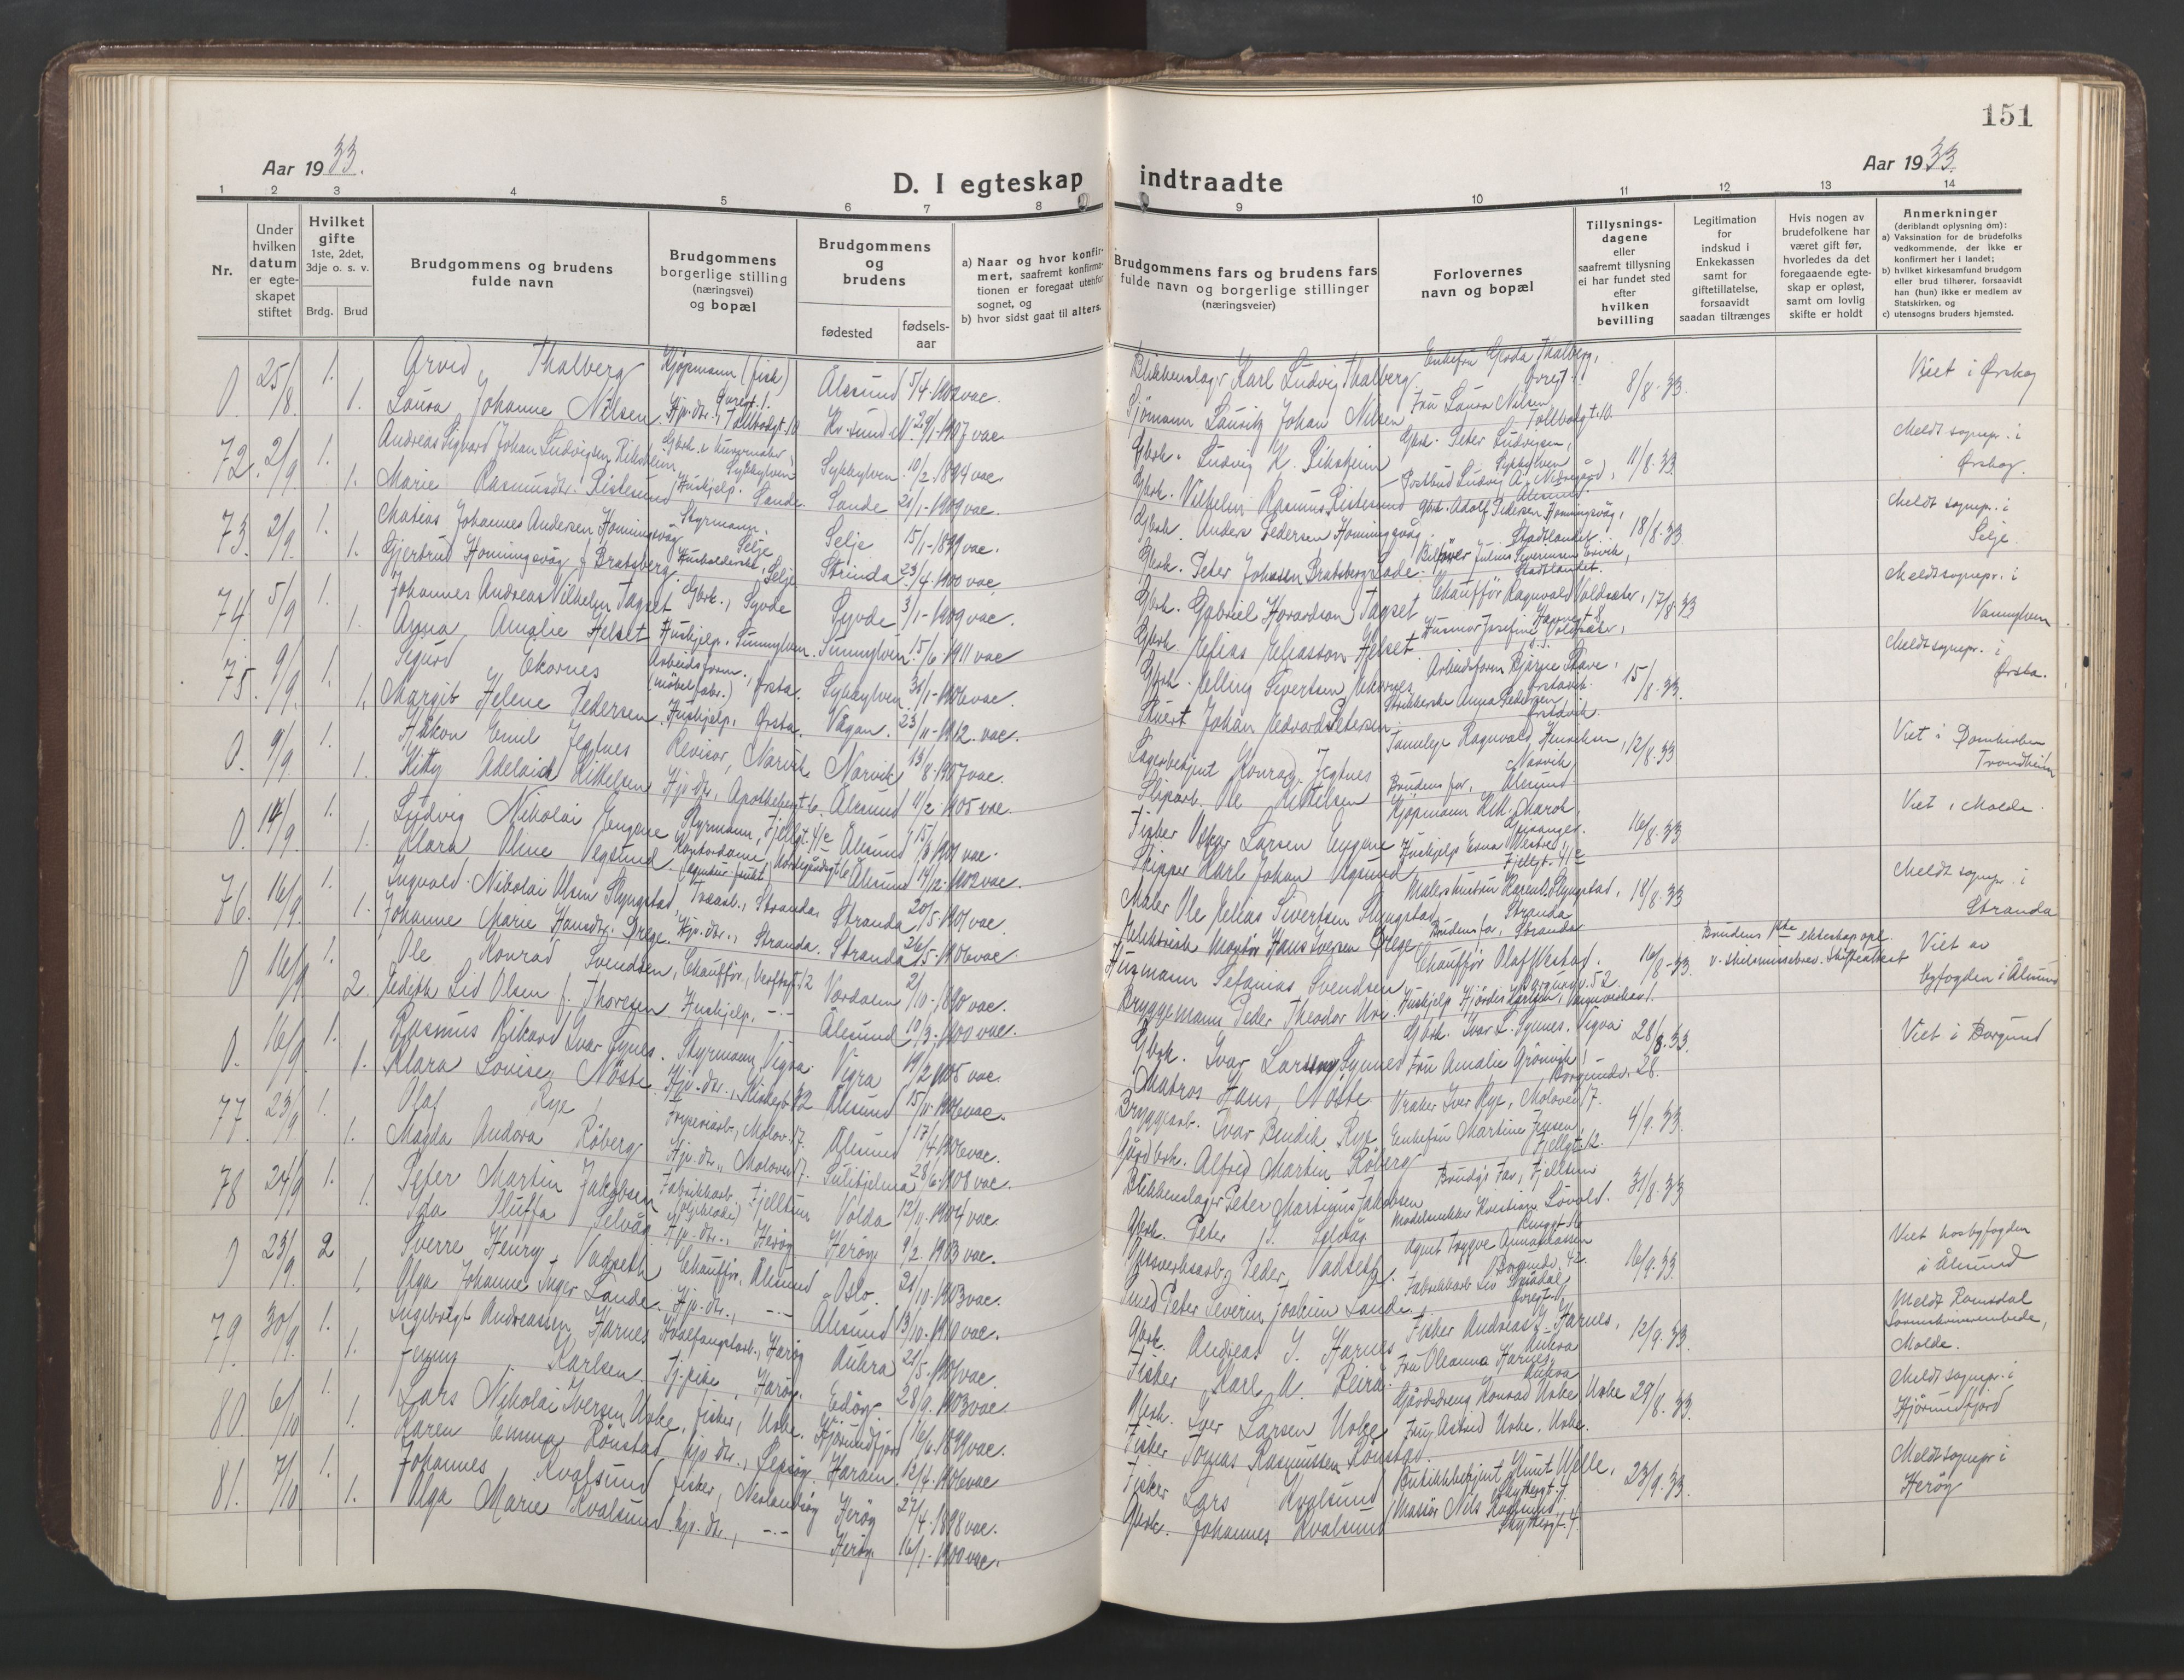 151
Aar 1933.
Aar 1933
D. I egteskap indtraadte
1 2 3 4 5 6 7 8 9 10 11 12 13 14
Nr.
Under hvilken datum er egteskapet stiftet
Hvilket gifte 1ste, 2det, 3dje o. s. v.
Brdg. Brud
Brudgommens og brudens fulde navn
Brudgommens borgerlige stilling (næringsvei) og bopæl
Brudgommens og brudens
fødested
fødsels-aar
a) Naar og hvor konfirmert, saafremt konfirmationen er foregaat utenfor sognet, og
b) hvor sidst gaat til alters.
Brudgommens fars og brudens fars fulde navn og borgerlige stillinger (næringsveier)
Forlovernes navn og bopæl
Tillysningsdagene eller saafremt tillysning ei har fundet sted efter hvilken bevilling
Legitimation for indskud i Enkekassen samt for giftetillatelse, forsaavidt saadan tiltrænges
Hvis nogen av brudefolkene har været gift før, hvorledes da det foregaaende egteskap er opløst, samt om lovlig skifte er holdt
Anmerkninger (deriblandt oplysning om):
a) Vaksination for de brudefolks vedkommende, der ikke er konfirmert her i landet;
b) hvilket kirkesamfund brudgom eller brud tilhører, forsaavidt han (hun) ikke er medlem av Statskirken, og
c) utensogns bruders hjemsted.
0 25/8 1. Arvid Thalberg Kjøpmann (fisk) Øvregt. 1. Ålesund 5/4-1902 vac. Blikkenslager Karl Ludvig Thalberg. Enkefru Gerda Thalberg, Øvregt. 1. 8/8-33. Viet i Ørskog
1. Laura Johanne Nilsen Hjv. dtr., Tollbodgt. 10 Kr.sund N. 29/1-1907 vac. Sjømann Lauritz Johan Nilsen Fru Laura Nilsen, Tollbodgt. 10.
72. 2/9 1. Andreas Sigvard Johan Ludvigsen Riksheim Gbrk. Sykkylven Sykkylven 10/2-1894 vac. Gbrk. Ludvig K. Riksheim Gbrk. Peter Ludvigsen, Sykkylven 11/8-33. Meldt sognepr. i Ørskog.
1. Marie Rasmusdtr. Ristesund Hushjelp. Sande. Sande 26/1-1909 vac. Gbrk. Vilhelm Rasmus Ristesund Postbud Ludvig A. Nedregård, Ålesund.
73. 2/9 1. Matias Johannes Andersen Honningsvåg Styrmann. Selje Selje 15/1-1899 vac. Gbrk. Anders Pedersen Honningsvåg. Gbrk. Adolf Pedersen Honningsvåg, Stadtlandet. 18/8-33. Meldt sognepr. i Selje.
1. Gjertrud Honningsvåg f. Bratsberg. Husholderske, Selje Strinda 23/4-1900 vac. Gbrk. Peter Johnsen Bratsberg Lade. Julius Severinsen Ervik, Stadtlandet.
74. 5/9 1. Johannes Andreas Vilhelm Tagset Gbrk., Syvde Syvde 3/1-1909 vac. Gbrk. Gabriel Havardson Tagset Chauffør Ragnvald Voldsæter, 17/8-33 Meldt sognepr. i Vannylven
1. Anna Amalie Helset Hushjelp, Sunnylven. Sunnylven 15/6-1911 vac. Gbrk. Elias Eliasson Helset. Husmor Josefine Voldsæter,
75. 9/9 1. Sigurd Ekornes Arbeidsform. (møbelfabr.) Ørsta. Sykkylven 31/1-1906 vac. Gbrk. Elling Sivertsen Ekornes Arbeidsform. Bjarne Skare, Ørstavik. 15/8-33. Meldt sognepr. i Ørsta.
1. Margit Helene Pedersen Hushjelp, Ørsta. Vågan. 23/11-1912. vac. Stuert Johan Edvard Petersen Strikkerske Anna Pedersen Ørstavik.
0. 9/9. 1. Håkon Emil Jegtnes Revisor, Narvik Narvik 13/8-1907 vac. Lagerbetjent Konrad Jegtnes Tannlege Ragnvald Henriksen, Narvik 12/8-33 Viet i Domkirken Trondheim
1. Kitty Adelaide Kittelsen Hjv. dtr., Apothekergt. 6. Ålesund 11/2-1905 vac. Sliparb. Ole Kittelsen Brudens far, Ålesund.
0. 14/9. 1. Ludvig Nikolai Eugene Styrmann, Fjellgt. 41c Ålesund 15/8-1901 vac. Fisker Oskar Larsen Eugene Kjøpmann H.K. Marøk, Geiranger. 16/8-33 Viet i Molde.
1. Klara Oline Vegsund Kontordame, Ålesund 14/12-1902 vac. Skipper Karl Johan Vegsund Hushjelp Erna Westre Fjellgt. 41c
76. 16/9. 1. Ingvald Nikolai Olsen Slyngstad Træarb., Stranda Stranda 20/5-1901 vac. Maler Ole Elias Sivertsen Slyngstad Malershustru Karen L. Slyngstad, Stranda 18/8-33. Meldt sognepr. i Stranda
1. Johanne Marie Hansdtr. Drege. Hjv. dtr., Stranda. Stranda 26/5-1906 vac. Elektrisk Montør Hans Iversen Drege Brudens far, Stranda
0 16/9 1. Ole Konrad Svendsen, Chauffør, Verftsgt. 12 Verdalen 2/10-1890 vac. Husmann Stefanias Svendsen Chauffør Olaf Westad, Borgundv. 52. 16/8-33. Brudens 1ste ekteskap opl. v. skilsmissebrev. Skifteattest Viet av byfogden i Ålesund
2. Edith Lid Olsen f. Thoresen Hushjelp, -"- Ålesund 10/3-1900 vac. Bryggemann Peder Theodor Uri Hushjelp Hjørdis Karlsen,
0. 16/9 1. Rasmus Rikard Ivar Synes. Styrmann, Vigra. Vigra 19/2-1905 vac. Gbrk. Ivar Larsen Synnes Gbrk. Ivar L. Synnes, Vigra 28/8-33. Viet i Borgund
1. Klara Lovise Nøste Hjv. dtr., Kirkegt. 32 Ålesund 15/11-1906 vac. Matros Hans Nøste Fru Amalie Grønvik, Borgundv. 28.
77. 23/9 1. Olaf Rye, Fryseriarb., Molov. 17. Ålesund 17/4-1906 vac. Bryggearb. Ivar Bendik Rye Vraker Iver Rye, Molovei 17. 4/9-33.
1. Magda Andora Røberg Hjv. dtr., Molovei 17. Sulitjelma 28/6-1908 vac. Gårdbrk. Alfred Martin Røberg Enkefru Martine Jensen, Fjellgt. 12.
78 24/9 1. Peter Martin Jakobsen Fabrikkarb. Fjelltun Volda 12/11-1904 vac. Blikkenslager Peter Martinus Jakobsen Brudg's Far, Fjelltun 31/8-33
1. Ida Steffa Selvåg Hjv. dtr., Herøy Herøy 9/2-1903 vac. Gbrk. Peter J. Selvåg Modelsnekker Kristian Løvold.
0 23/9 2 Sverre Henry Vadseth Chauffør, Ålesund Oslo. 21/10-1903 vac. Gassverksarb. Peder Vadseth. Agent Trygve Borgundv. 42. 16/9-33. Viet hos byfogden i Ålesund
1. Olga Johanne Inger Sande. Hjv. dtr., -"- Ålesund 13/10-1910 vac. Smed Peter Severin Joakim Sande. Fabrikkarb.
79 30/9. 1. Ingebrigt Andreassen Harnes Hvalfangstarb., Harøy Aukra 21/5-1901 vac. Gbrk. Andreas J. Harnes Fisker Andreas J. Harnes, Aukra 12/9-33. Meldt Romsdal Sorenskriverembede, Molde.
1. Jenny Karlsen Tj. pike, Harøy. Edøy 28/9-1903 vac. Fisker Karl A. Reira Fru Oleanna Harnes, Aukra
80. 6/10 1. Lars Nikolai Iversen Urke, fisker, Urke. Hjørundfjord 16/6-1899 vac. Gbrk. Iver Larsen Urke Gårdsdreng Konrad Urke, Urke 29/8-33. Meldt sognepr. i Hjørundfjord
1. Karen Emma Rønstad hjv. dtr., Lepsøy. Haram. 12/4-1906 vac Fisker Tomas Rasmussen Rønstad. Fru Astrid Urke, Urke.
81. 7/10 1. Johannes Kvalsund fisker, Nerlandsøy Herøy 27/4-1898 vac. Fisker Lars Kvalsund Butikkbetjent Knut Welle, 23/9-33. Meldt sognepr i Herøy
1. Olga Marie Kvalsund. hjv. dtr., -"- Herøy 16/1-1900 vac. Gbrk. Johannes Kvalsund Massør Nils Kvalsund